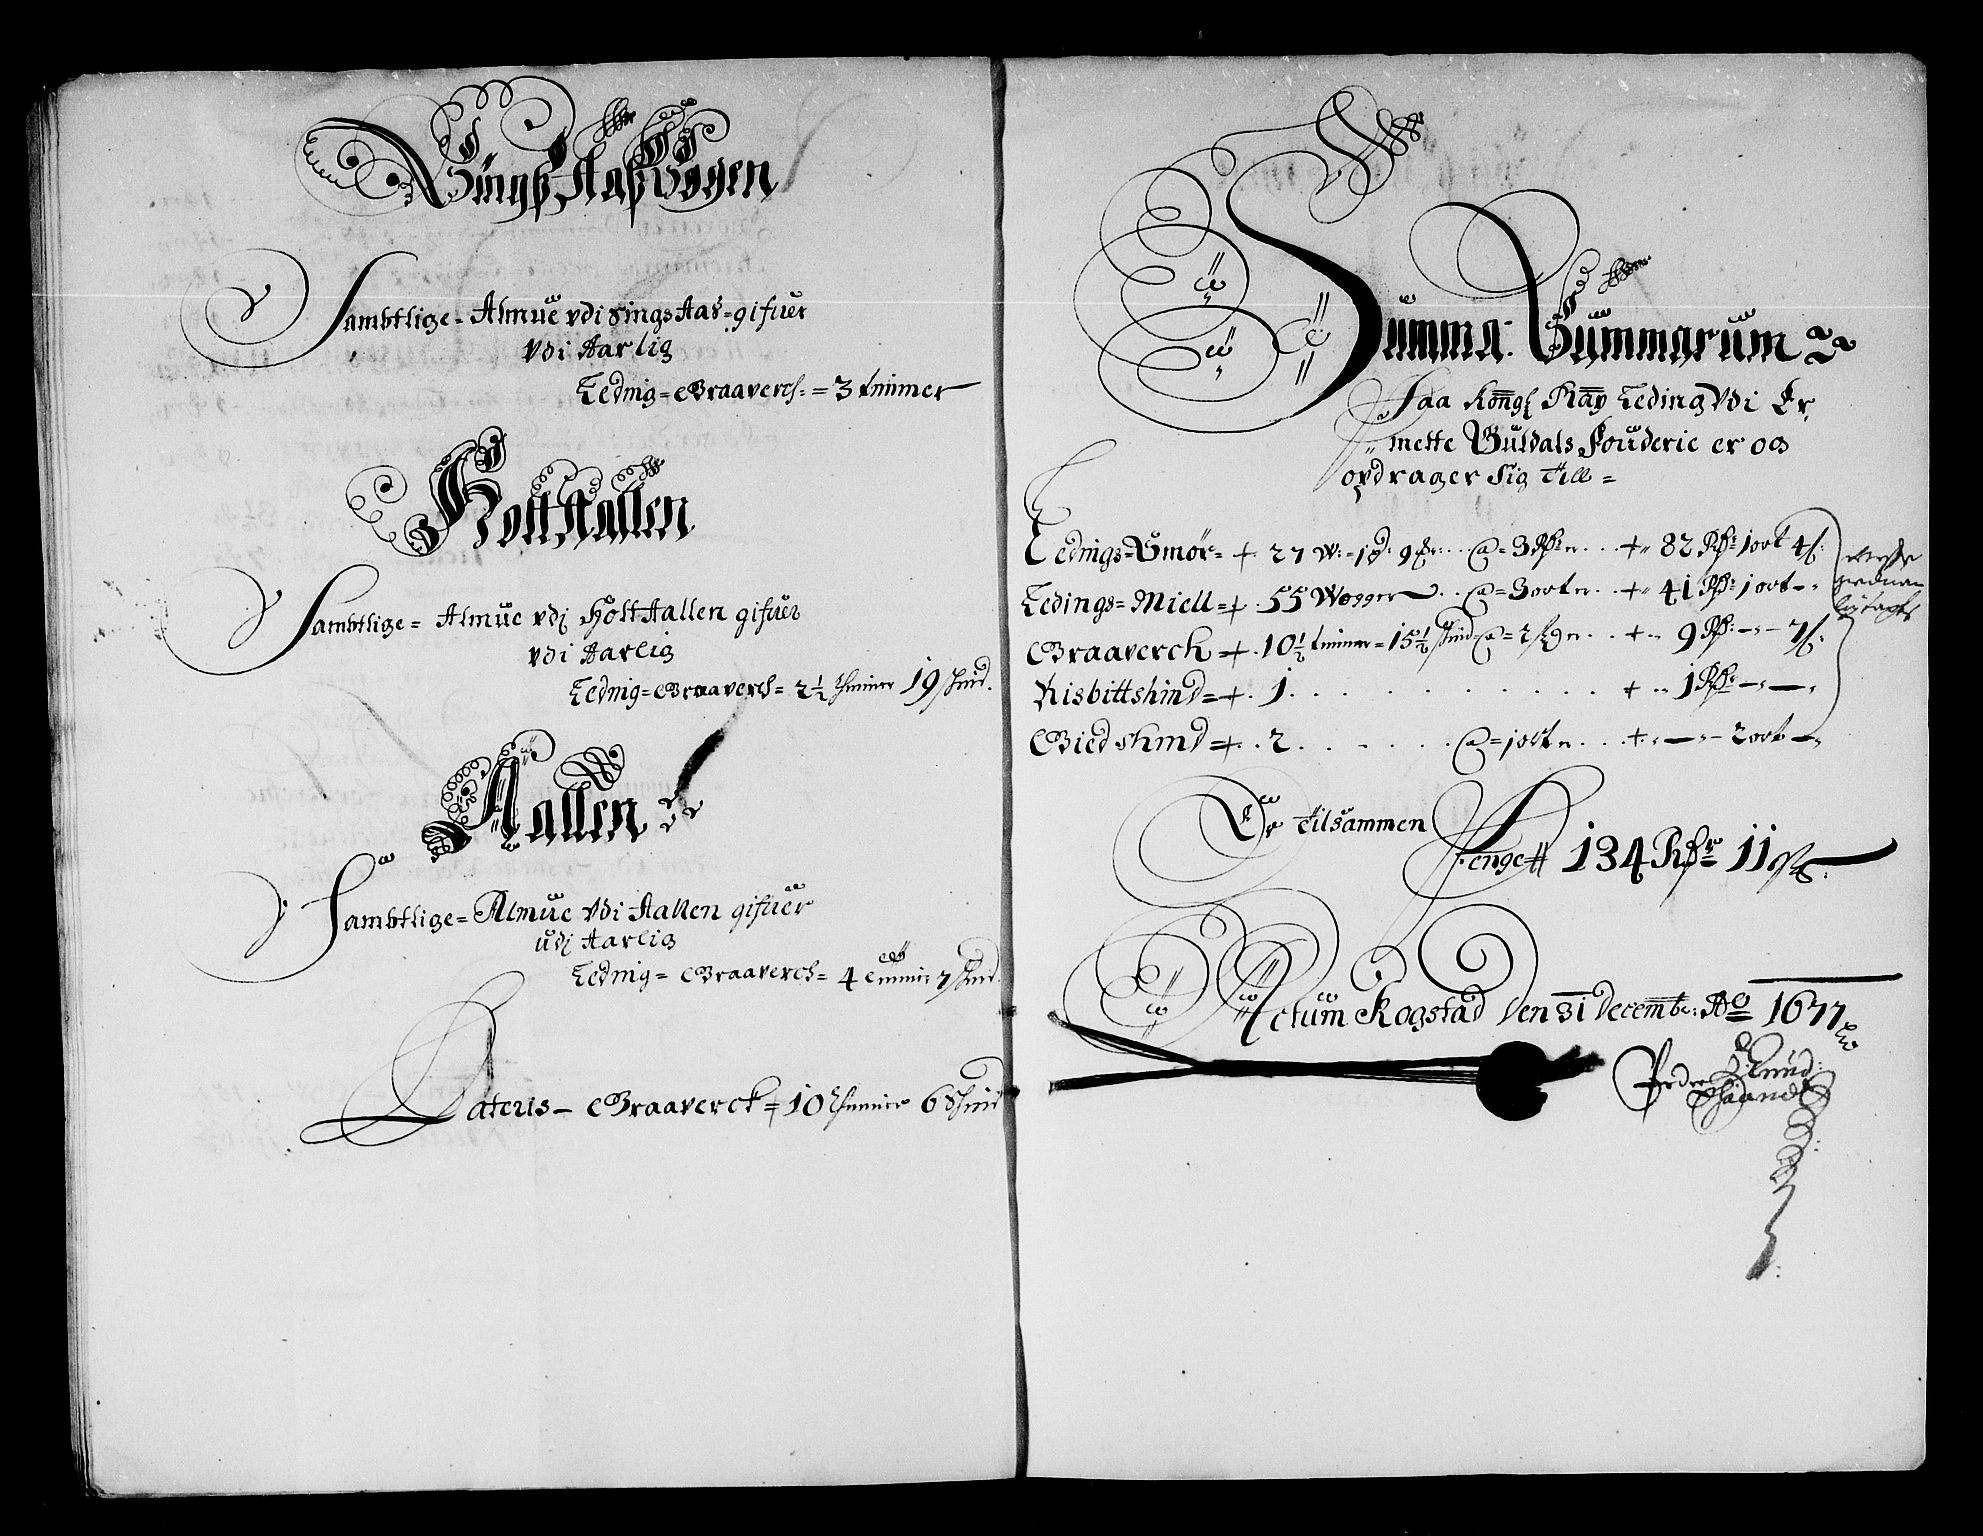 Singsaaß Vogen
Sambtlige = Almue vdi Singsaas = gifuer
vdi Aarlig
Leding = Graaverch = 3 timmer
Holt Aallen
Sambtlige = Almue vdj Holtaallen gifuer
vdi Aarlig
Leding = Graaverch = 2½ Thimmer 19 skind.
Aallen
Sambtlige = Almue vdi Aallen gifuer
udj Aarlig
Leding = Graaverch = 4 timmer 7 skind.
Lateris – Graaverck = 10 Thimmer 6 skind
Summa: Summarum
Paa Kongl: May Leding Vdi Er
mette Guldals Fouderie er og
opdrager sig till =
Ledings = Smör = 27 W: = 1 pd: 9 ... @ = 3 Rdr .. 82 Rdr 1 ort 4 s:
Ledings = Miell = 55 Wogger @ = 3 ort .. 41 Rdr 1 ort –
Graaverck = 10½ timmer = 15½ skind @ = 2 s .. 9 Rdr – 7 s:
Kisbittskind = 1 . . . 1 Rdr – –
Giedskind = 2 . . . @ = 1 ort .. – 2 ort –
Er tilsammen
Penge 134 Rdr 11 s
Actum Rogstad den 31 Decembr: Ao 1677
Peder Knud